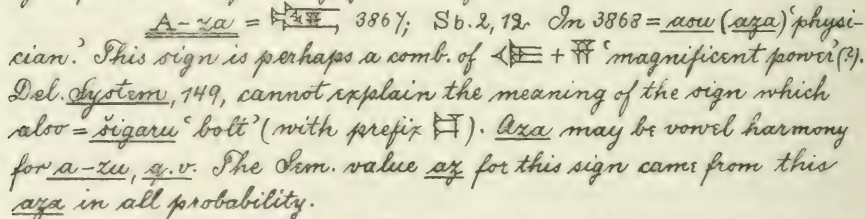 A-za = 3867; Sb. 2, 12. In 3868 = asu (aza) 'physi-
cian.' This sign is perhaps a comb. of + 'magnificent power' (?).
Del. System, 149, cannot explain the meaning of the sign which
also = šigaru 'bolt' (with prefix ). Aza may be vowel harmony
for a-zu, q.v. The Sem. value az for this sign came from this
aza in all probability.